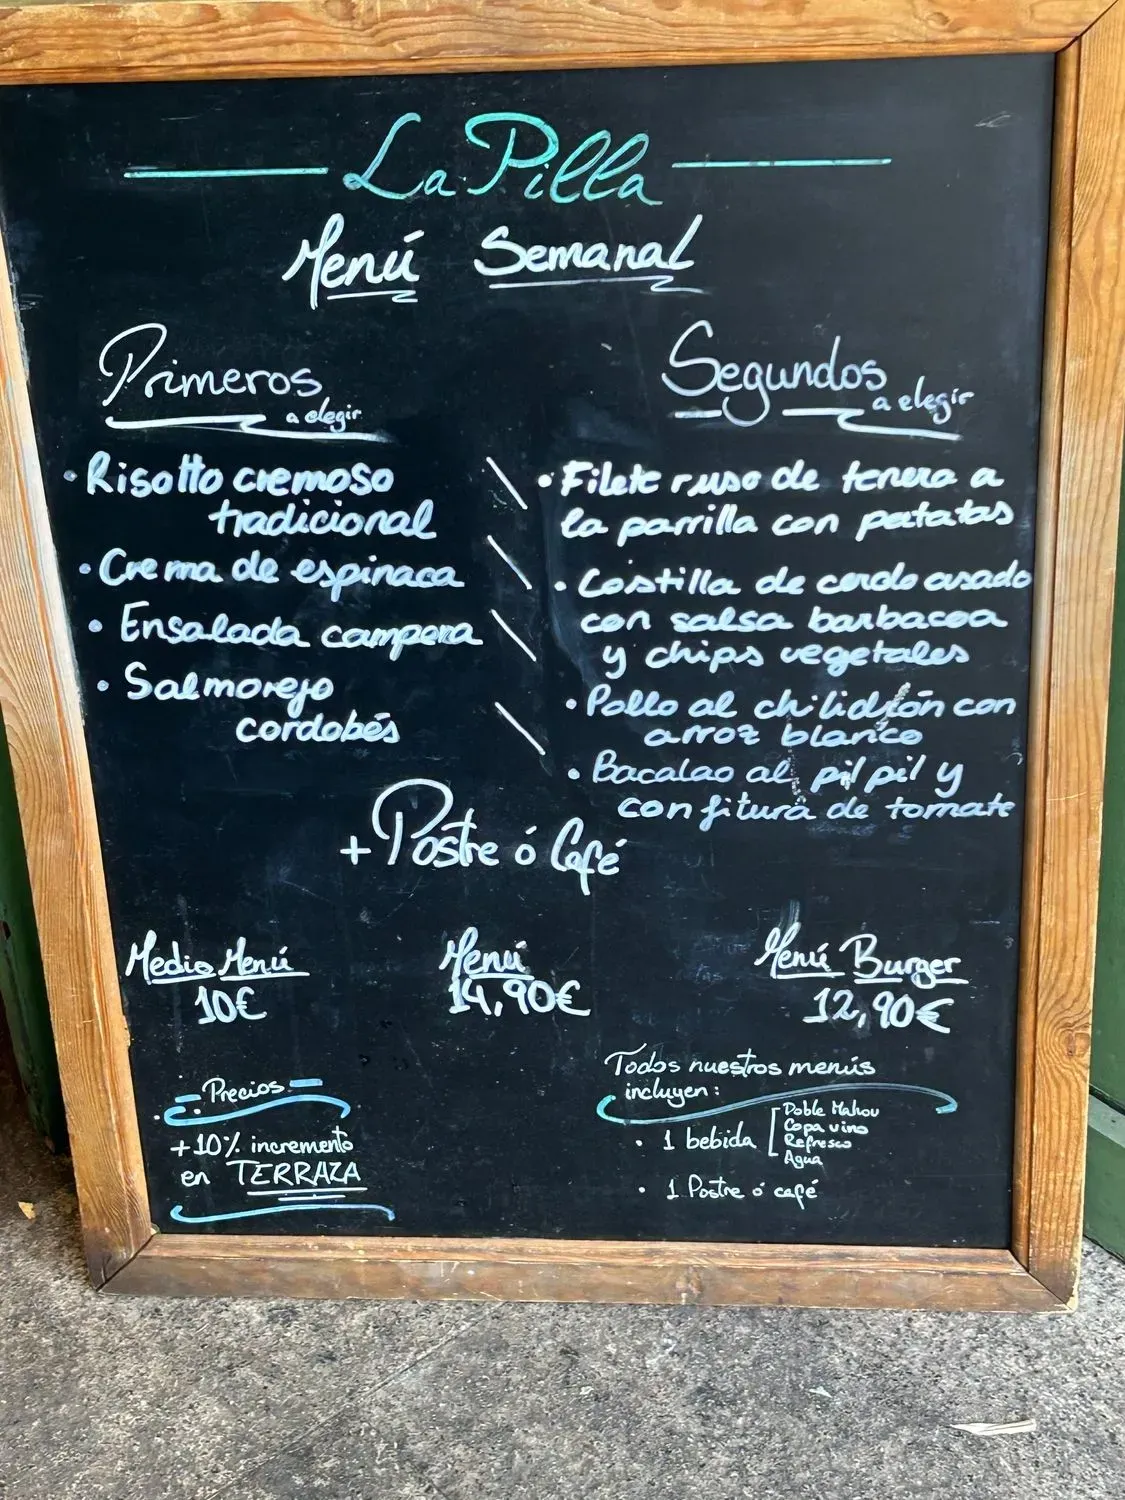 La Pilla
Menú Semanal
Primeros
a elegir
• Risotto cremoso
tradicional
• Crema de espinaca
• Ensalada campera
• Salmorejo
cordobés
Segundos
a elegir
• Filete ruso de tenera a
la parrilla con patatas
• Costilla de cerdo asado
con salsa barbacoa
y chips vegetales
• Pollo al chilidrón con
arroz blanco
• Bacalao al pil pil y
confitura de tomate
+ Postre ó Café
Medio Menú
10€
Menú
14,90€
Menú Burger
12,90€
Precios
+10% incremento
en TERRAZA
Todos nuestros menús
incluyen:
• 1 bebida
Doble Mahou
Copa vino
Refresco
Agua
• 1 Postre ó café